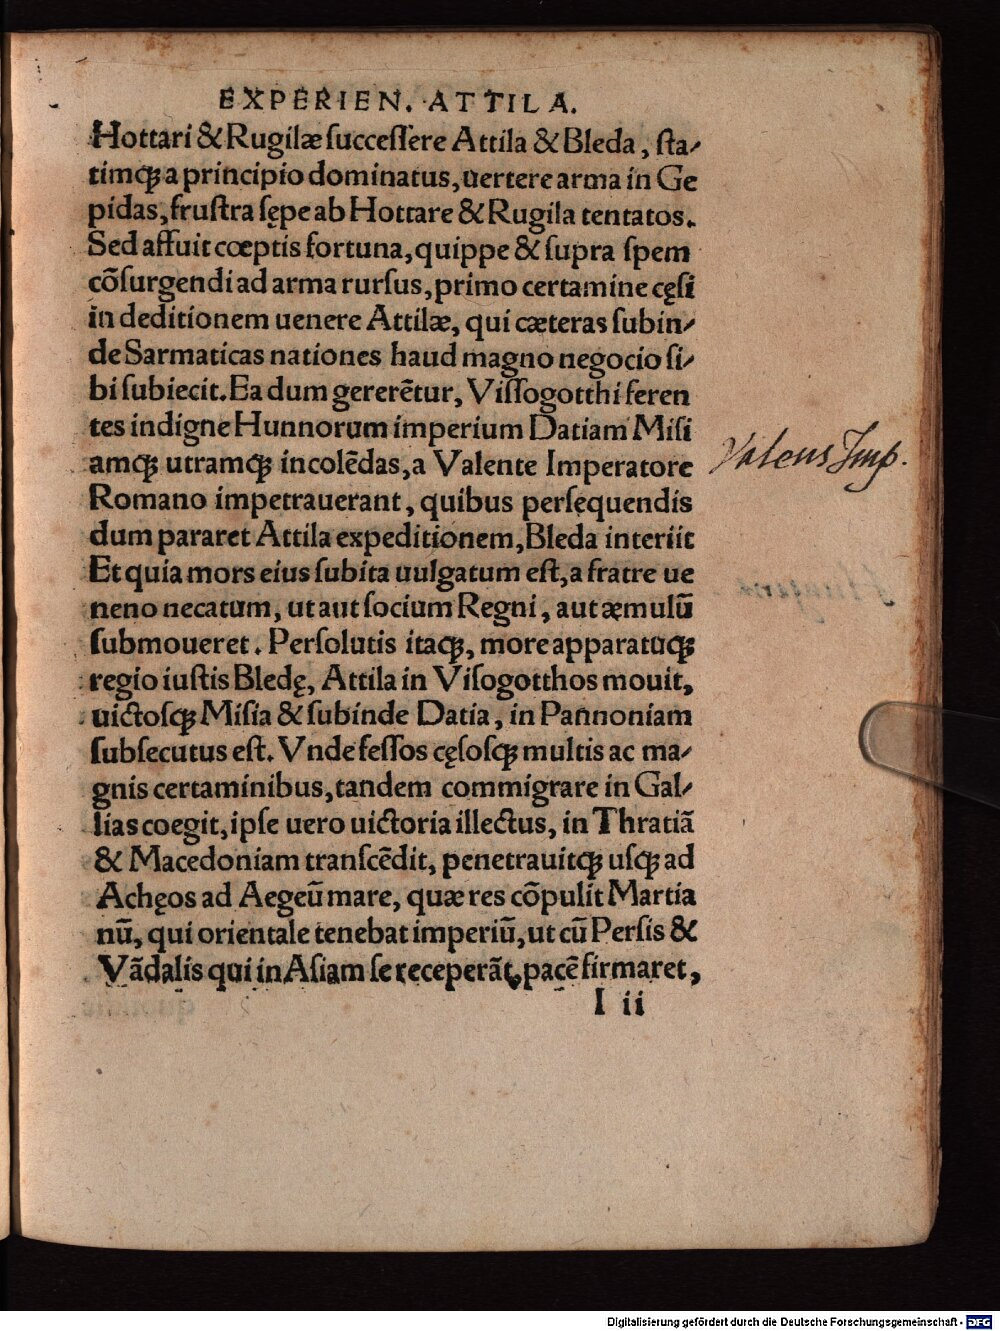 EXPERIEN. ATTILA.
Hottari & Rugilæ ſucceſſere Attila & Bleda, ſta/
timq́ꝫ a principio dominatus, uertere arma in Ge
pidas, fruſtra ſępe ab Hottare & Rugila tentatos.
Sed affuit cœptis fortuna, quippe & ſupra ſpem
cõſurgendi ad arma rurſus, primo certamine cęſi
in deditionem uenere Attilæ, qui cæteras ſubin/
de Sarmaticas nationes haud magno negocio ſi/
bi ſubiecit. Ea dum gererẽtur, Viſſogotthi feren
tes indigne Hunnorum imperium Datiam Miſi
amq́ꝫ utramq́ꝫ incolẽdas, a Valente Imperatore
Valens Imp.
Romano impetrauerant, quibus perſęquendis
dum pararet Attila expeditionem, Bleda interiit
Et quia mors eius ſubita uulgatum eſt, a fratre ue
neno necatum, ut aut ſocium Regni, aut æmulũ
ſubmoueret. Perſolutis itaq́ꝫ, more apparatuq́ꝫ
regio iuſtis Bledę, Attila in Viſogotthos mouit,
uictoſq́ꝫ Miſia & ſubinde Datia, in Pannoniam
ſubſecutus eſt. Vnde feſſos cęſoſq́ꝫ multis ac ma/
gnis certaminibus, tandem commigrare in Gal/
lias coegit, ipſe uero uictoria illectus, in Thratiã
& Macedoniam tranſcẽdit, penetrauitq́ꝫ uſq́ꝫ ad
Achęos ad Aegeũ mare, quæ res cõpulit Martia
nũ, qui orientale tenebat imperiũ, ut cũ Perſis &
Vãdalis qui in Aſiam ſe receperãt, pacẽ firmaret,
I ii
Digitalisierung gefördert durch die Deutsche Forschungsgemeinschaft - DFG